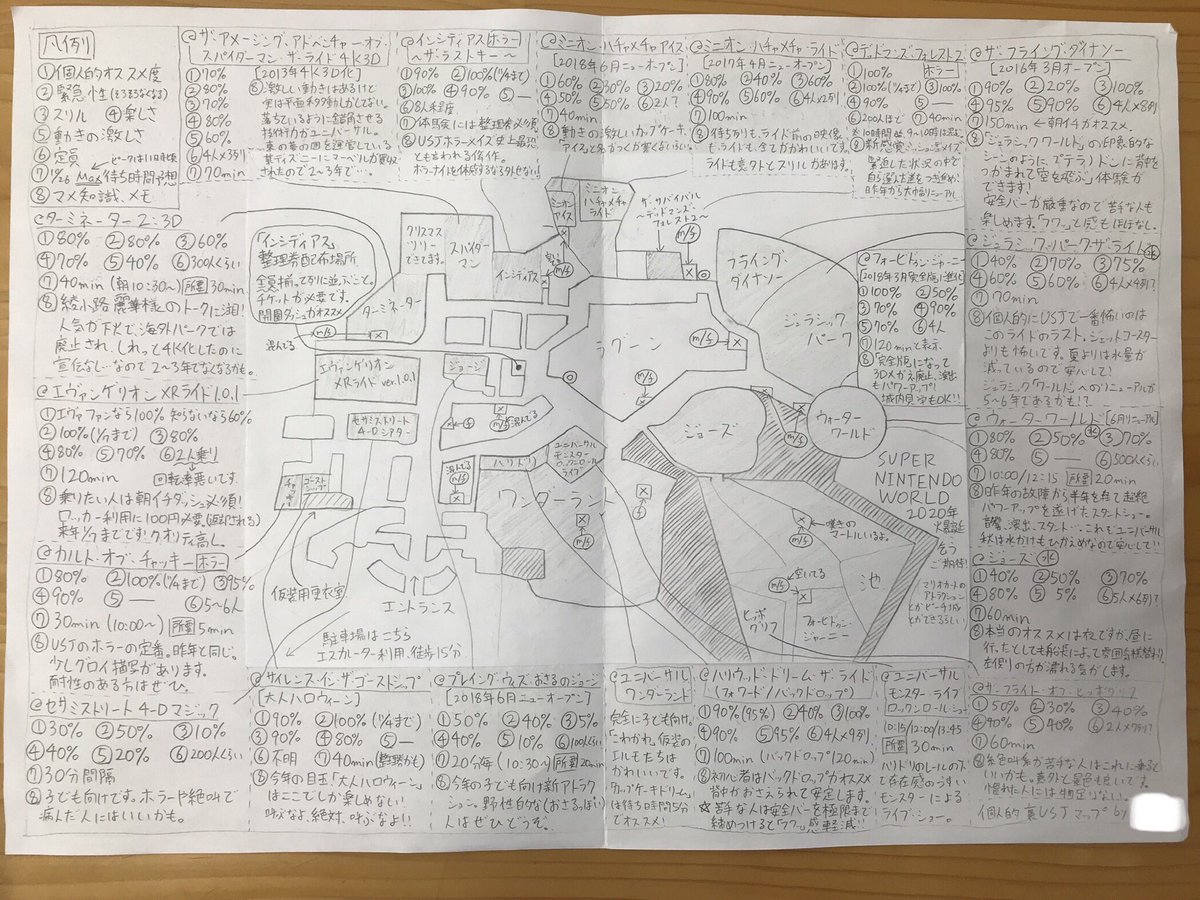 凡例
①個人的オススメ度
②緊急性(そろそろなくなる)
③スリル ④楽しさ
⑤動きの激しさ
⑥定員
⑦11/26 Max待ち時間予想
ピークは11日中頃
⑧マメ知識、メモ
@ザ・アメージング・アドベンチャー・オブ・
スパイダーマン・ザ・ライド 4K3D
[2013年4K3D化]
①70%
②80%
③70%
④80%
⑤60%
⑥4人×3列
⑦70min
⑧激しい動きはあるけど
実は平面移動しかしてない。
落ちているように錯覚させる
技術力がユニバーサル。
@インシディアス ホラー
~ザ・ラストキー~
①90% ②100%(11/4まで)
③100% ④90% ⑤—
⑥8人程度
⑦体験には整理券必須
⑧USJホラーメイズ史上最恐
とも言われる怪作。
ホラーナイトを体感するなら外せない!
@ミニオン・ハチャメチャアイス
[2018年6月ニューオープン]
①60% ②30% ③20%
④50% ⑤50% ⑥2人?
⑦40min
⑧動きの激しいカップケーキ。
「アイス」と名がつくが寒くないらしい。
@ミニオン・ハチャメチャ・ライド
[2017年4月ニューオープン]
①80% ②40% ③60%
④90% ⑤60% ⑥4人×2列
⑦100min
⑧待ち列も、ライド前の映像
もライドも、全てがかわいいです。
ライドも意外とスリルがあります。
@デッドマンズ・フォレスト2
ホラー
①100%
②100%(11/4まで) ③100%
④90% ⑤—
⑥200人ほど ⑦40min
@ザ・フライング・ダイナソー
[2016年3月オープン]
①90% ②20% ③100%
④95% ⑤90% ⑥4人×8列
⑦150min ←朝イチがオススメ。
⑧『ジュラシックワールド』の印象的な
シーンのように「プテラノドンに背中を
つかまれて空を飛ぶ」体験が
できます!
安全バーが厳重なので苦手な人も
楽しめます。「フワッ」と感もほぼなし。
@ターミネーター2:3D
①80% ②80% ③60%
④70% ⑤40% ⑥300人くらい
⑦40min(朝10:30~) 所要30min
⑧綾小路麗華様のトークに注目!
人気が下火で、海外パークでは
廃止され、しれっと4K化したのに
宣伝なし…なので2~3年でなくなるかも。
@エヴァンゲリオンXRライド1.0.1
①エヴァファンなら100% 知らないなら60%
②100%(1/7まで) ③80%
④80% ⑤70% ⑥2人乗り
⑦120min 回転率悪いです。
⑧乗りたい人は朝イチダッシュ必須!
ロッカー利用に100円必要(返却される)
来年1/7までです!クオリティ高し。
@カルト・オブ・チャッキー ホラー
①80% ②100%(11/4まで) ③95%
④90% ⑤— ⑥5~6人
⑦30min(10:00~) 所要5min
⑧USJのホラーの定番。昨年と同じ。
少しグロイ描写があります。
耐性のある方はぜひ。
@セサミストリート4-Dマジック
①30% ②50% ③10%
④40% ⑤20% ⑥200人くらい
⑦30分間隔
⑧子ども向けです。ホラーや絶叫で
病んだ人にはいいかも。
「インシディアス」
整理券配布場所
全員揃って列に並ぶこと。
チケットが必要です。
開園ダッシュがオススメ
クリスマス
ツリー
できてます。
スパイダー
マン
ターミネーター
混んでる
インシディアス
ミニオン
アイス
ミニオン
ハチャメチャ
ライド
ザ・サバイバル
~デッドマンズ・
フォレスト2~
フライング・
ダイナソー
ジュラシック
パーク
ラグーン
エヴァンゲリオン
XRライド ver.1.0.1
ジョージ
セサミストリート
4-Dシアター
チャッキー
ゴースト
シップ
混んでる
混んでる
ハリドリ
ユニバーサル
モンスター
ロックンロール
ライブ
ワンダーランド
ジョーズ
ウォーター
ワールド
仮装用更衣室
エントランス
駐車場はこちら
エスカレーター利用、徒歩15分
嘆きの
マートルいるよ。
空いてる
ヒッポ
グリフ
フォービドゥン・
ジャーニー
池
SUPER
NINTENDO
WORLD
2020年
爆誕
乞う
ご期待!
マリオカートの
アトラクション
とかピーチ城
とかができるらしい
@フォービドゥン・ジャーニー
[2018年3月完全版に進化]
①100% ②50%
③70% ④90%
⑤70% ⑥4人
⑦120minと表示
⑧「完全版」になって
3Dメガネ廃止、演出
もパワーアップ!
城内見学もOK!!
@ジュラシック・パーク・ザ・ライド 水
①40% ②70% ③75%
④60% ⑤60% ⑥4人×4列?
⑦70min
⑧個人的にUSJで一番怖いのは
このライドのラスト。ジェットコースター
よりも怖いです。夏よりは水量が
減っているので安心して!
ジュラシックワールドへのリニューアルが
5~6年であるかも!?
@ウォーターワールド [6月リニューアル]
水
①80% ②50% ③70%
④80% ⑤— ⑥500人くらい
⑦10:00/12:15 所要20min
⑧昨年の故障から半年を経て超絶
パワーアップを遂げたスタントショー。
音響、演出、スタント…これもユニバーサル
秋は水かけもひかえめなので安心して!!
@ジョーズ 水
①40% ②50% ③70%
④80% ⑤5% ⑥6人×6列?
⑦60min
⑧本当のオススメは夜ですが、昼に
行ったとしても船長によって雰囲気が変わり
左側の方が濡れる気がします。
@サイレンス・イン・ザ・ゴーストシップ
[大人ハロウィーン]
①90% ②100%(11/4まで)
③90% ④80% ⑤—
⑥不明 ⑦40min(整理券かも)
⑧今年の目玉!「大人ハロウィーン」
はここでしか楽しめない!
叫ぶなよ、絶対、叫ぶなよ!!
@プレイング・ウィズ・おさるのジョージ
[2018年6月ニューオープン]
①50% ②40% ③5%
④40% ⑤10% ⑥100人くらい
⑦20分毎(10:30~) 所要20min
⑧今年の子ども向け新アトラク
ション。野性的な(おさるっぽい)
人はぜひどうぞ。
@ユニバーサル
ワンダーランド
完全に子ども向け。
「こわかわ」仮装の
エルモたちは
かわいいです。
「カップケーキドリーム」
は待ち時間5分
でオススメ!
@ハリウッド・ドリーム・ザ・ライド
(フォワード/バックドロップ)
①90%(95%) ②40% ③100%
④90% ⑤95% ⑥4人×9列
⑦100min(バックドロップ120min)
⑧初心者はバックドロップがオススメ
背中がおさえられて安定します。
☆苦手な人は安全バーを極限まで
締めつけると「フワッ」感軽減!!
@ユニバーサル
モンスター・ライブ・
ロックンロール・ショー
10:15/12:00/13:45
所要30min
ハリドリのレールの下
で存在感のうすい
モンスターによる
ライブ・ショー。
@ザ・フライト・オブ・ヒッポグリフ
①50% ②30% ③40%
④40% ⑤40% ⑥2人×9列?
⑦60min
⑧絶叫系が苦手な人はこれに乗ると
いいかも。意外と景色も良いです。
慣れた人には物足りない。
個人的裏USJマップ by